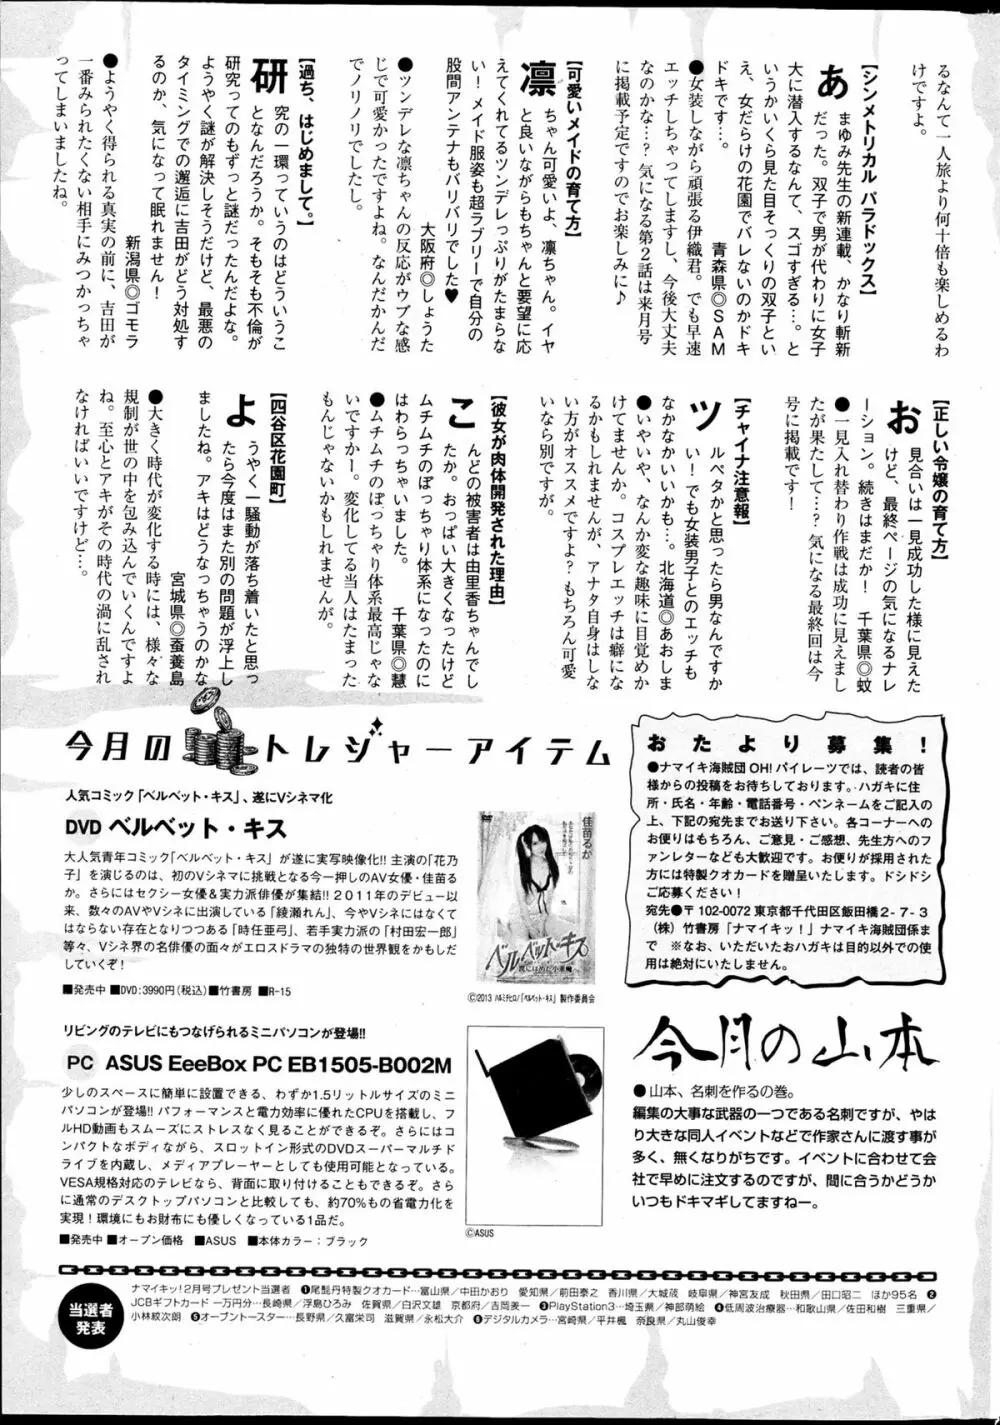 るなんて一人旅より何十倍も楽しめるわ
けですよ。
【シンメトリカル パラドックス】
あまゆみ先生の新連載、かなり斬新
だった。双子で男が代わりに女子
大に潜入するなんて、スゴすぎる…。と
いうかいくら見た目そっくりの双子とい
え、女だらけの花園でバレないのかドキ
ドキです…。　青森県◎SAM
●女装しながら頑張る伊織君。でも早速
エッチしちゃってしますし、今後大丈夫
なのかな…？気になる第2話は来月号
に掲載予定ですのでお楽しみに♪
【可愛いメイドの育て方】
凛ちゃん可愛いよ、凛ちゃん。イヤ
と良いながらもちゃんと要望に応
えてくれてるツンデレっぷりがたまらな
い！メイド服姿も超ラブリーで自分の
股間アンテナもバリバリでした♥
大阪府◎しょうた
●ツンデレな凛ちゃんの反応がウブな感
じで可愛かったですよね。なんだかんだ
でノリノリでしたし。
【過ち、はじめまして。】
研究の一環っていうのはどういうこ
となんだろうか。そもそも不倫が
研究ってのもずっと謎だったんだよな。
ようやく謎が解決しそうだけど、最悪の
タイミングでの邂逅に吉田がどう対処す
るのか、気になって眠れません！
新潟県◎ゴモラ
●ようやく得られる真実の前に、吉田が
一番みられたくない相手にみつかっちゃ
ってしまいましたね。
【正しい令嬢の育て方】
お見合いは一見成功した様に見えた
けど、最終ページの気になるナレ
ーション。続きはまだか！　千葉県◎蚊
●一見入れ替わり作戦は成功に見えまし
たが果たして…？気になる最終回は今
号に掲載です！
【チャイナ注意報】
ツルペタかと思ったら男なんですか
い！でも女装男子とのエッチも
なかなかいいかも…。北海道◎あおしま
●いやいや、なんか変な趣味に目覚めか
けてませんか。コスプレエッチは癖にな
るかもしれませんが、アナタ自身はしな
い方がオススメですよ？もちろん可愛
いなら別ですが。
【彼女が肉体開発された理由】
こんどの被害者は由里香ちゃんでし
たか。おっぱい大きくなったけど
ムチムチのぽっちゃり体系になったのに
はわらっちゃいました。　千葉県◎慧
●ムチムチのぽっちゃり体系最高じゃな
いですかー。変化してる当人はたまった
もんじゃないかもしれませんが。
【四谷区花園町】
ようやく一騒動が落ち着いたと思っ
たら今度はまた別の問題が浮上し
ましたね。アキはどうなっちゃうのかな
宮城県◎蚕養島
●大きく時代が変化する時には、様々な
規制が世の中を包み込んでいくんですよ
ね。至心とアキがその時代の渦に乱され
なければいいですけど…。
今月のトレジャーアイテム
人気コミック「ベルベット・キス」、遂にVシネマ化
DVD ベルベット・キス
大人気青年コミック「ベルベット・キス」が遂に実写映像化!! 主演の「花乃
子」を演じるのは、初のVシネマに挑戦となる今一押しのAV女優・佳苗る
か。さらにはセクシー女優&実力派俳優が集結!! 2011年のデビュー以
来、数々のAVやVシネに出演している「綾瀬れん」、今やVシネにはなくて
はならない存在となりつつある「時任亜弓」、若手実力派の「村田宏一郎」
等々、Vシネ界の名俳優の面々がエロスドラマの独特の世界観をかもしだ
していくぞ！
■発売中 ■DVD:3990円(税込) ■竹書房 ■R-15
佳苗るか
ベルベット・キス
罠にはめた小悪魔
©2013 ハルミチヒロ/「ベルベット・キス」製作委員会
リビングのテレビにもつなげられるミニパソコンが登場!!
PC ASUS EeeBox PC EB1505-B002M
少しのスペースに簡単に設置できる、わずか1.5リットルサイズのミニ
パソコンが登場!! パフォーマンスと電力効率に優れたCPUを搭載し、フ
ルHD動画もスムーズにストレスなく見ることができるぞ。さらにはコ
ンパクトなボディながら、スロットイン形式のDVDスーパーマルチド
ライブを内蔵し、メディアプレーヤーとしても使用可能となっている。
VESA規格対応のテレビなら、背面に取り付けることもできるぞ。さら
に通常のデスクトップパソコンと比較しても、約70%もの省電力化を
実現！環境にもお財布にも優しくなっている1品だ。
■発売中 ■オープン価格 ■ASUS ■本体カラー：ブラック
©ASUS
おたより募集！
●ナマイキ海賊団OH!パイレーツでは、読者の皆
様からの投稿をお待ちしております。ハガキに住
所・氏名・年齢・電話番号・ペンネームをご記入の
上、下記の宛先までお送り下さい。各コーナーへの
お便りはもちろん、ご意見・ご感想、先生方へのフ
ァンレターなども大歓迎です。お便りが採用された
方には特製クオカードを贈呈いたします。ドシドシ
ご応募ください！
宛先●〒102-0072 東京都千代田区飯田橋2-7-3
(株)竹書房「ナマイキッ！」ナマイキ海賊団係ま
で　※なお、いただいたおハガキは目的以外での使
用は絶対にいたしません。
今月の山本
●山本、名刺を作るの巻。
編集の大事な武器の一つである名刺ですが、やは
り大きな同人イベントなどで作家さんに渡す事が
多く、無くなりがちです。イベントに合わせて会
社で早めに注文するのですが、間に合うかどうか
いつもドキマギしてますねー。
当選者
発表
ナマイキッ！2月号プレゼント当選者 ❶尾髭丹特製クオカード…富山県/中田かおり 愛知県/前田泰之 香川県/大城茂 岐阜県/神宮友成 秋田県/田口昭二 ほか95名 ❷
JCBギフトカード 一万円分…長崎県/浮島ひろみ 佐賀県/白沢文雄 京都府/吉岡美一 ❸PlayStation3…埼玉県/神部萌絵 ❹低周波治療器…和歌山県/佐田和樹 三重県/
小林紋次朗 ❺オーブントースター…長野県/久富栄司 滋賀県/永松大介 ❻デジタルカメラ…宮崎県/平井楓 奈良県/丸山俊幸